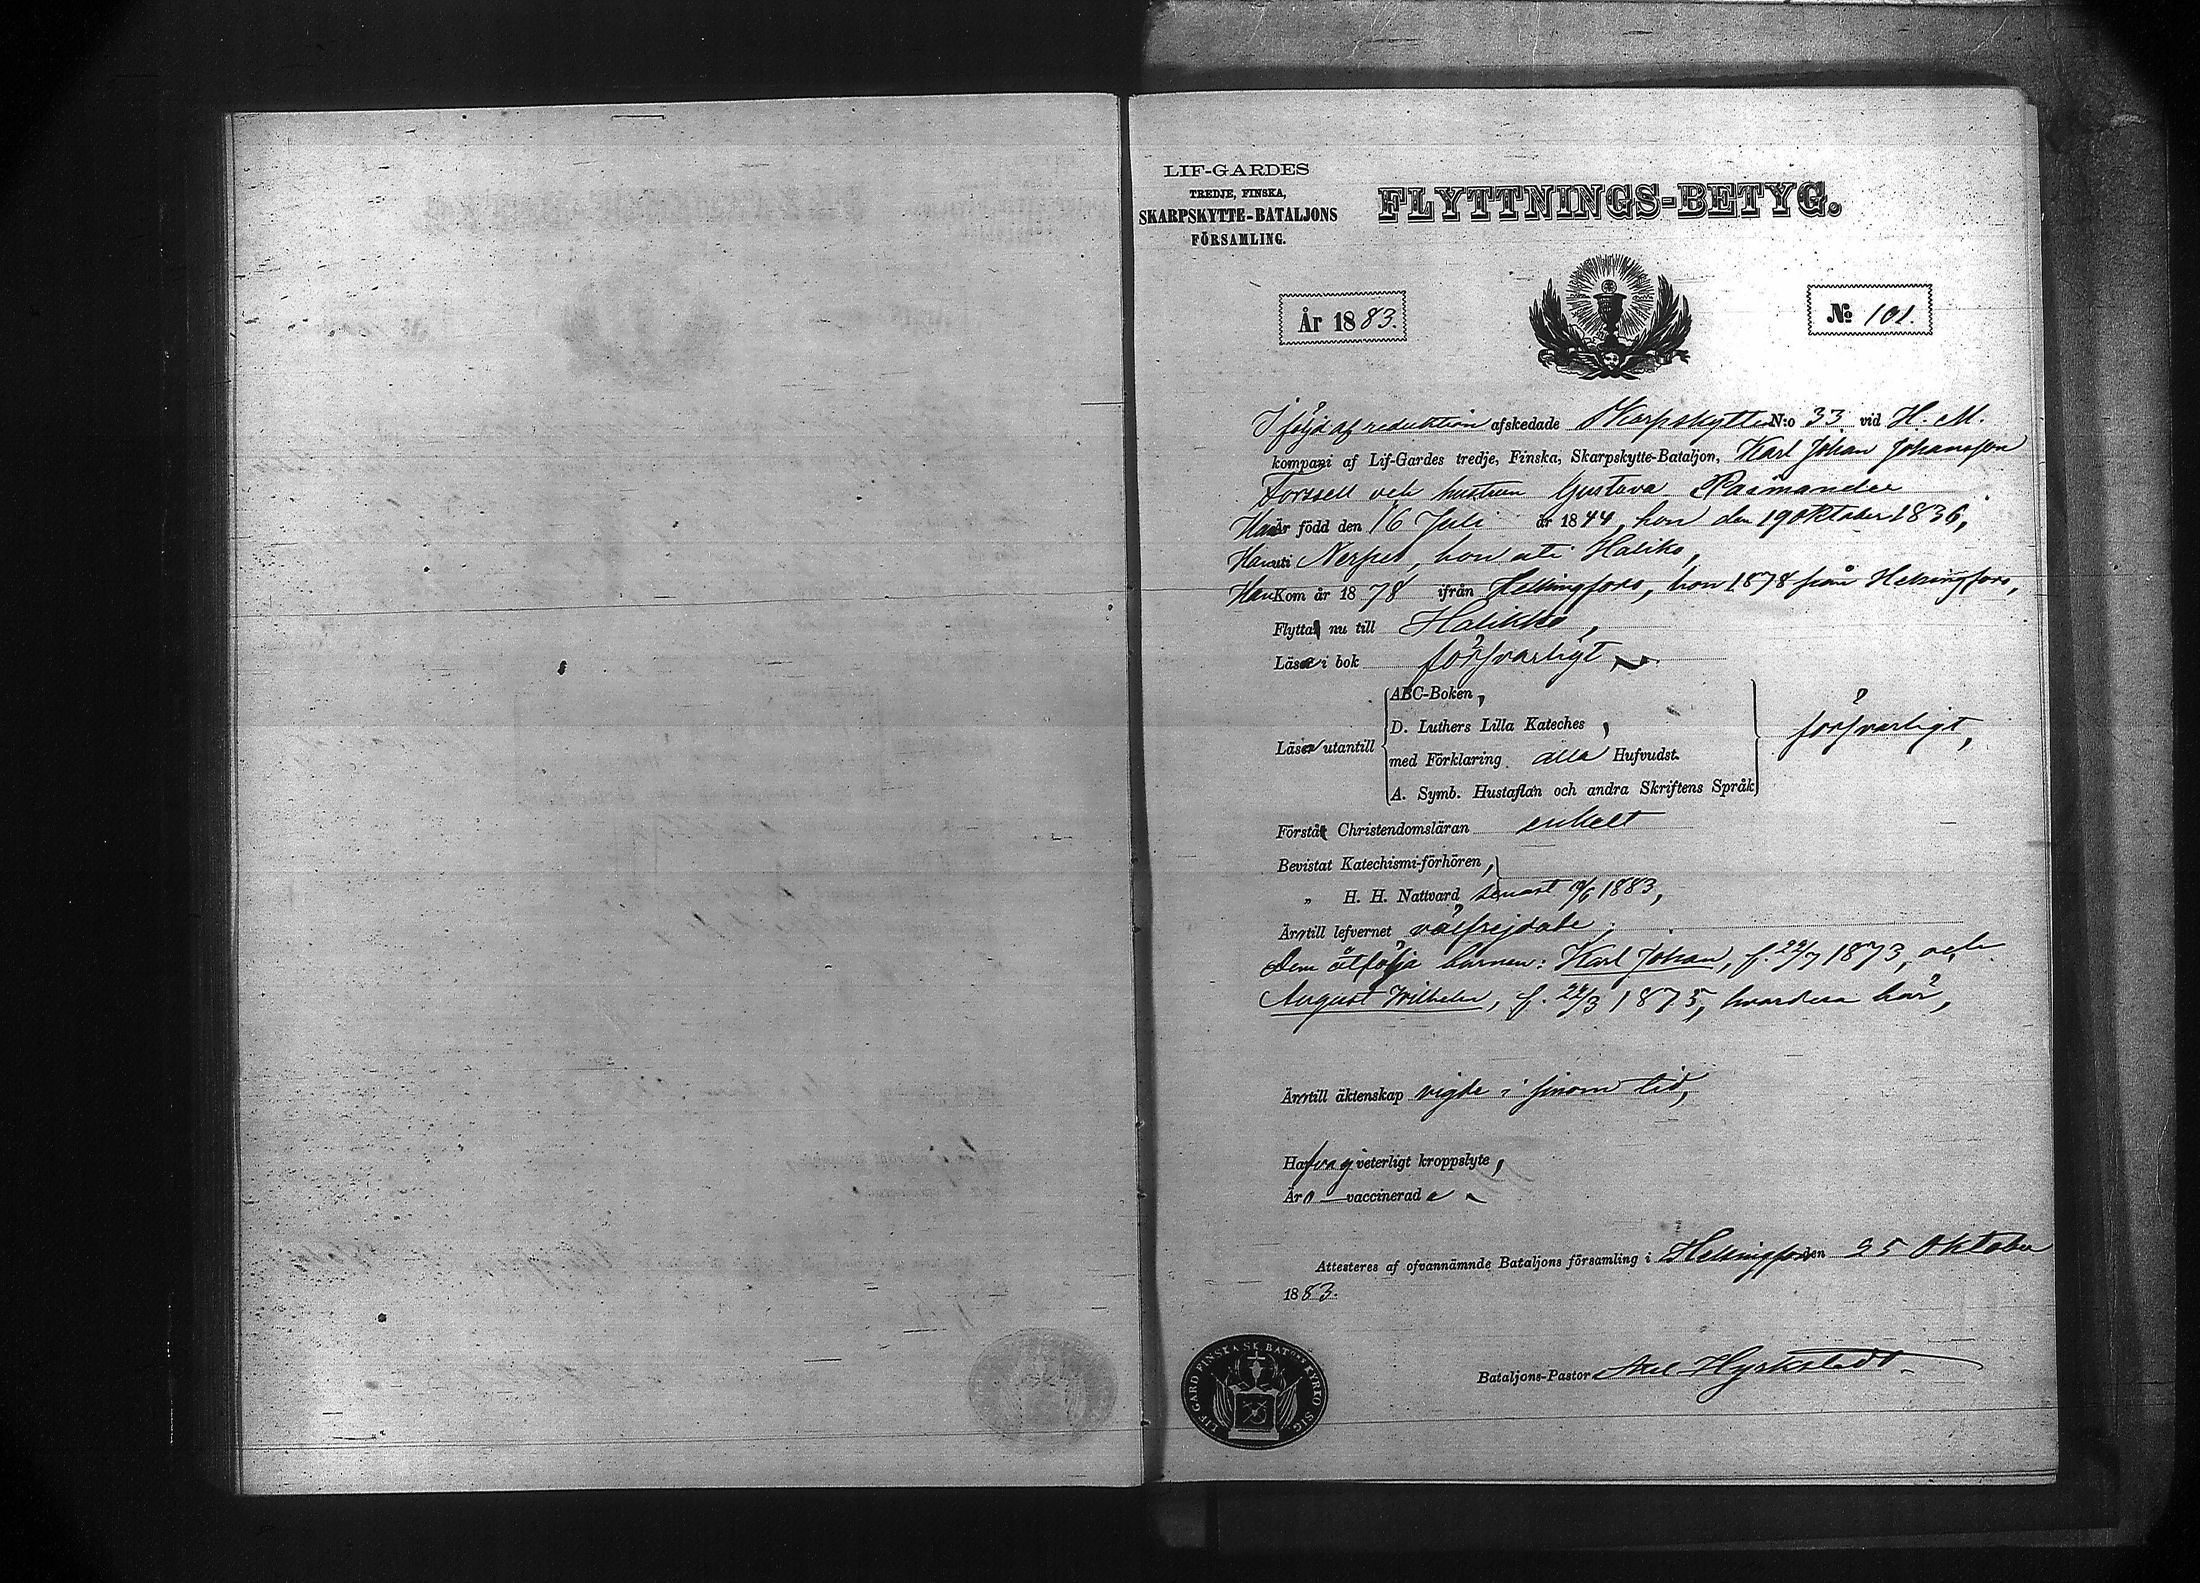 LIF-GARDES
TREDJE, FINSKA,
SKARPSKYTTE-BATALJONS
FÖRSAMLING.
FLYTTNINGS-BETYG.
År 1883.
No 101.
I följd af reduktion afskedade Skarpskytten N:o 33 vid H. M.
kompani af Lif-Gardes tredje, Finska, Skarpskytte-Bataljon, Karl Johan Johansson
Forssell och hustrun Gustava
Han är född den 16 Juli år 1844, hon den 19 Oktober 1836,
Han uti Nerpes, hon uti Haliko,
Han Kom år 1878 ifrån Helsingfors, hon 1878 från Helsingfors,
Flytta nu till Halikko,
Läsa i bok försvarligt
ABC-Boken,
D. Luthers Lilla Kateches,
Läsa utantill
med Förklaring alla Hufvudst.
försvarligt,
A. Symb. Hustaflan och andra Skriftens Språk
Förstå Christendomsläran enkelt
Bevistat Katechismi-förhören,
„ H. H. Nattvard senast 1883,
Äro till lefvernet välfrejdade,
Dem åtfölja barnen: Karl Johan, f. 29/7 1873, och
August Wilhelm, f. 22/3 1875, hvardera här,
Äro till äktenskap vigde i sinom tid,
Hafva ej veterligt kroppslyte,
Äro vaccinerade
Attesteres af ofvannämnde Bataljons församling i Helsingfors den 25 Oktober
1883.
Bataljons-Pastor Axel Hyrkstedt.
LIF GARD FINSKA SK. BAT:S KYRKO SIG.